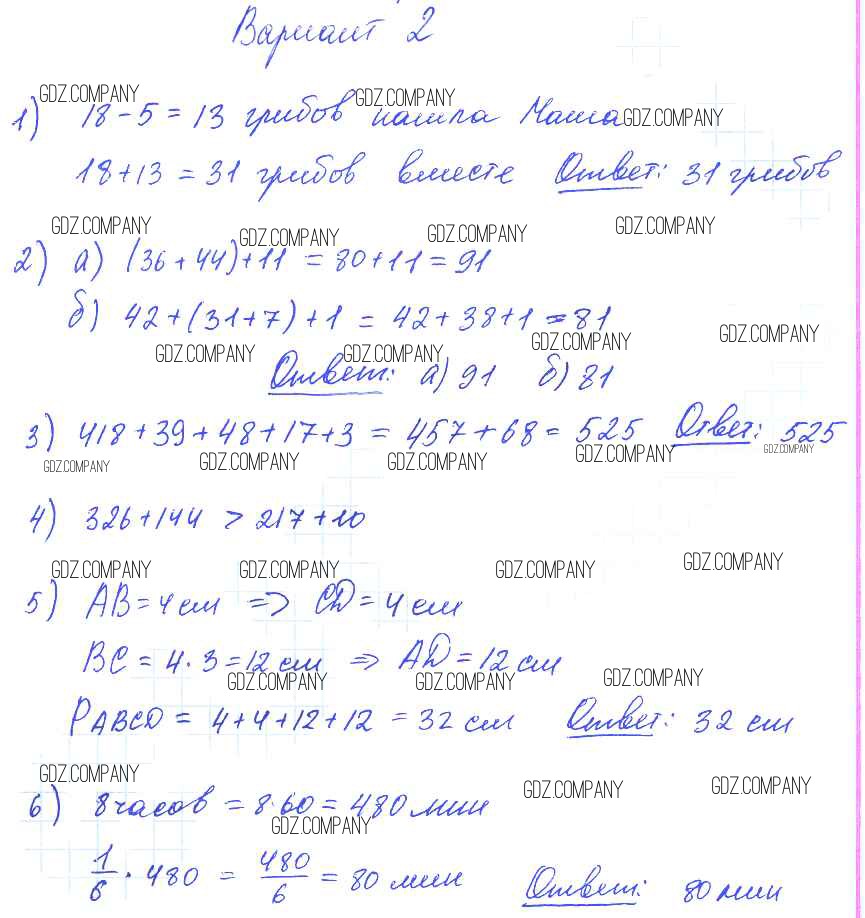 Вариант 2
GDZ.COMPANY GDZ.COMPANY
1) 18 - 5 = 13 грибов нашла Маша GDZ.COMPANY
18 + 13 = 31 грибов вместе Ответ: 31 грибов
GDZ.COMPANY GDZ.COMPANY GDZ.COMPANY GDZ.COMPANY
2) а) (36 + 44) + 11 = 80 + 11 = 91
б) 42 + (31 + 7) + 1 = 42 + 38 + 1 = 81
GDZ.COMPANY GDZ.COMPANY GDZ.COMPANY GDZ.COMPANY
Ответ: а) 91 б) 81
3) 418 + 39 + 48 + 17 + 3 = 457 + 68 = 525 Ответ: 525
GDZ.COMPANY GDZ.COMPANY GDZ.COMPANY GDZ.COMPANY GDZ.COMPANY
4) 326 + 144 > 217 + 10
GDZ.COMPANY GDZ.COMPANY GDZ.COMPANY GDZ.COMPANY
5) AB = 4 см => CD = 4 см
BC = 4 · 3 = 12 см => AD = 12 см
GDZ.COMPANY GDZ.COMPANY GDZ.COMPANY
PABCD = 4 + 4 + 12 + 12 = 32 см Ответ: 32 см
GDZ.COMPANY GDZ.COMPANY GDZ.COMPANY
6) 8 часов = 8 · 60 = 480 мин
GDZ.COMPANY
1/6 · 480 = 480/6 = 80 мин Ответ: 80 мин